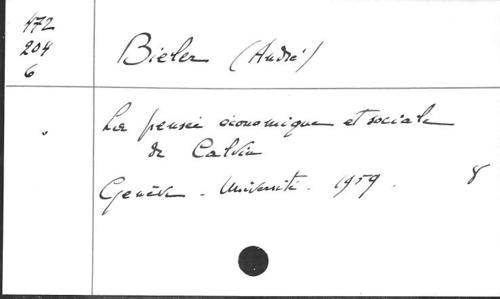 472
204
6
Bieler (André)
La pensée économique et sociale
de Calvin
Genève - Université - 1959.
8